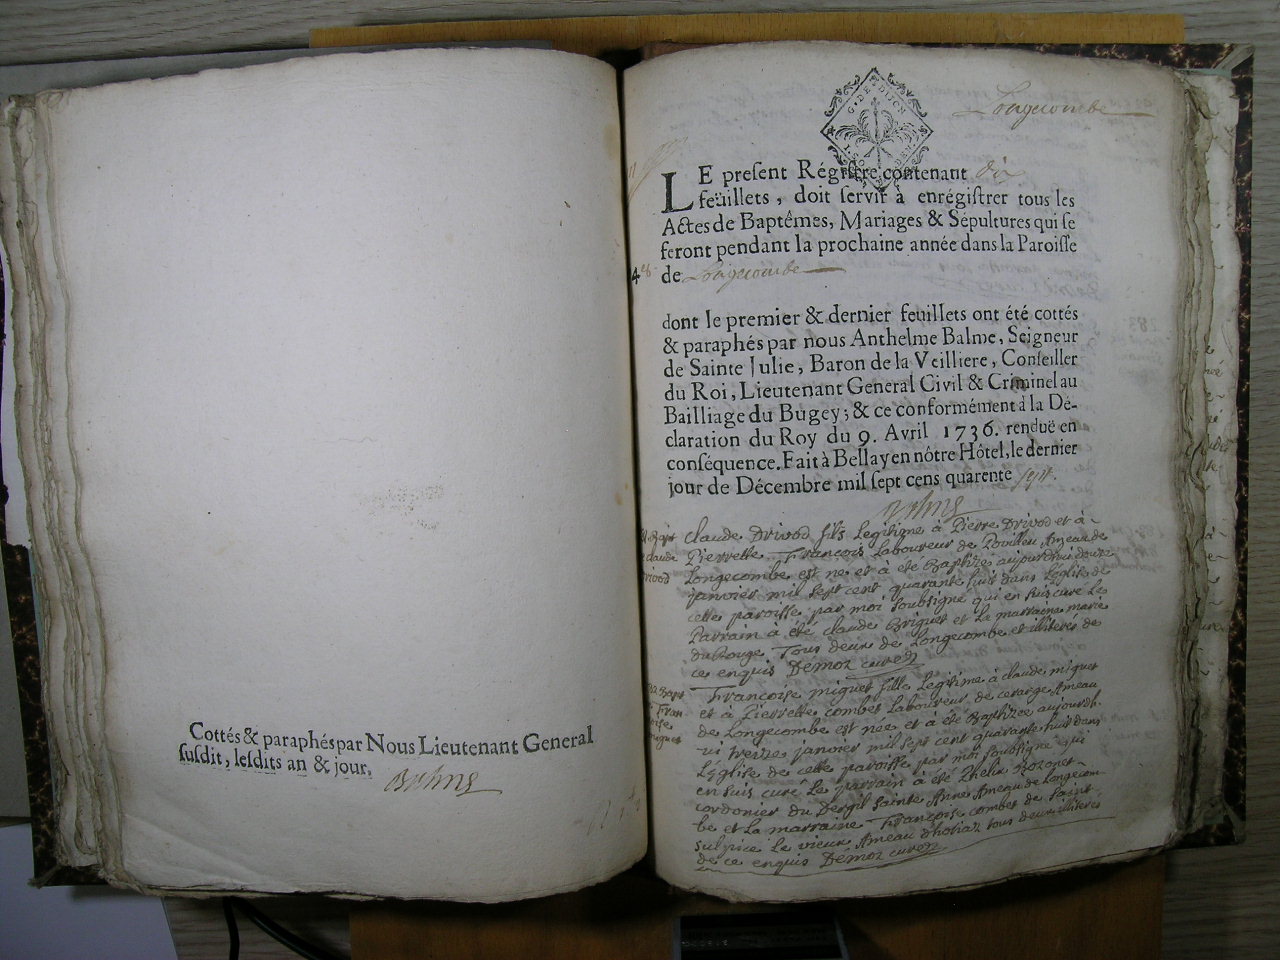 Cottés & paraphés par Nous Lieutenant General
susdit, lesdits an & jour,
Longecombe
G. DE DIJON
LE present Régistre contenant dix
feüillets, doit servir à enrégistrer tous les
Actes de Baptêmes, Mariages & Sépultures qui se
feront pendant la prochaine année dans la Paroisse
de Longecombe
dont le premier & dernier feuillets ont été cottés
& paraphés par nous Anthelme Balme, Seigneur
de Sainte Julie, Baron de la Veilliere, Conseiller
du Roi, Lieutenant General Civil & Criminel au
Bailliage du Bugey; & ce conformément à la Dé-
claration du Roy du 9. Avril 1736. renduë en
conséquence. Fait à Bellay en nôtre Hôtel, le dernier
jour de Décembre mil sept cens quarente sept.
Bapt
claude
Drivod
claude Drivod fils Legitigne à Pierre Drivod et à
Pierrette Francois Laboureur de Ameau de
Longecombe est ne et à été Baptize aujourdhui douze
janvier mil sept cent quarante huit dans L'église de
cette paroisse par moi soubsigné qui en suis curé Le
Parrain à été claude Briguet et La marraine marie
Du Rouge Tous deux de Longecombe et illiterés de
ce enquis Démoz curez
Bapt
Fran
oise
miguet
Francoise miguet fille Legitime à claude miguet
et à Pierrette combet Laboureur de cerarge Ameau
de Longecombe est née et à été Baptizee aujourdh
ui treize janvier mil sept cent quarante huit dans
L'église de cette paroisse par moi soubsigné qui
en suis curé Le parrain à été Phelix Rozonet
cordonier du Sainte Anne Ameau de Longecom-
be et La marraine Francoise combet de saint
sulpice Le vieux Ameau d'hotiaz tous deux illiteres
de ce enquis Démoz curez